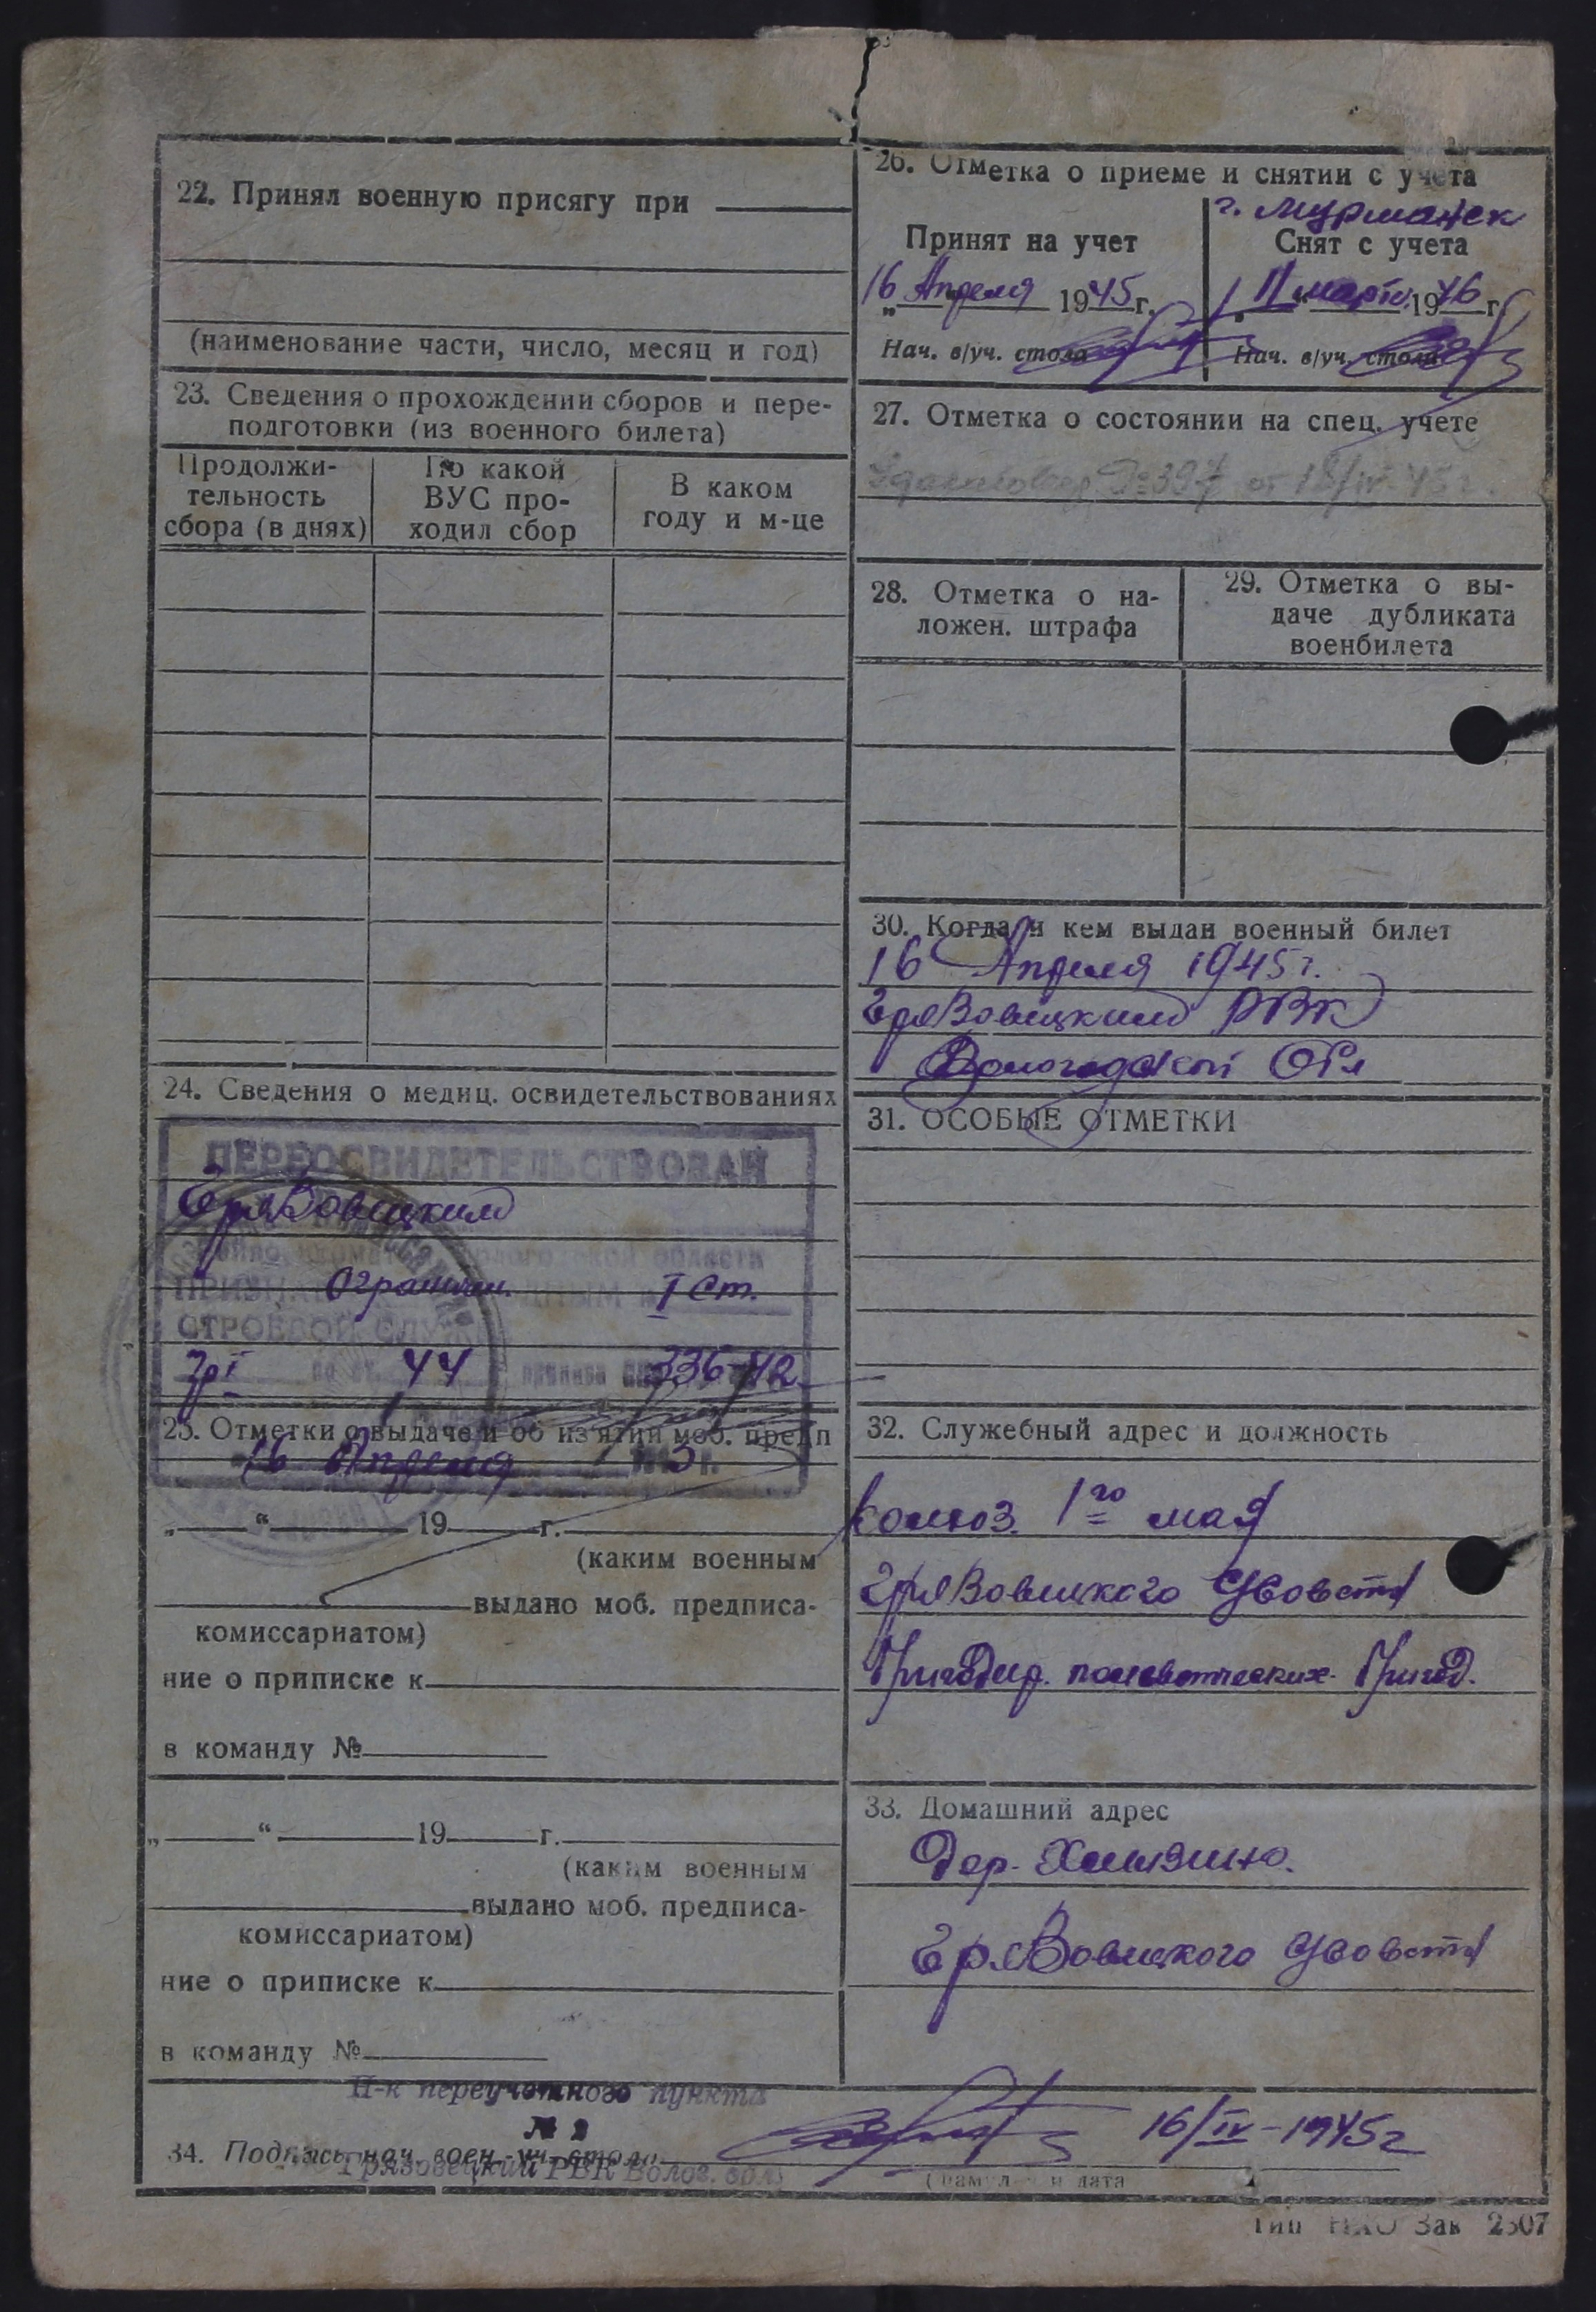 22. Принял военную присягу при
(наименование части, число, месяц и год)
23. Сведения о прохождении сборов и пере-
подготовки (из военного билета)
Продолжи-
тельность
сбора (в днях)
По какой
ВУС про-
ходил сбор
В каком
году и м-це
24. Сведения о медиц. освидетельствованиях
ПЕРЕОСВИДЕТЕЛЬСТВОВАН
Грязовецким
огранич. I ст.
СТРОЕВОЙ СЛУЖ
гр I по ст. 44 приказа 336-42
25. Отметки о выдаче и об из'ятии моб. предп
16 Апреля
„ “ 19 г.
(каким военным
выдано моб. предписа-
комиссариатом)
ние о приписке к
в команду №
„ “ 19 г.
(каким военным
выдано моб. предписа-
комиссариатом)
ние о приписке к
в команду №
26. Отметка о приеме и снятии с учета
г. Мурманск
Принят на учет
16 Апреля 1945 г.
Нач. в/уч. стола
Снят с учета
11 марта 1946 г.
Нач. в/уч. стола
27. Отметка о состоянии на спец. учете
№ 397 от 18/IV-45 г.
28. Отметка о на-
ложен. штрафа
29. Отметка о вы-
даче дубликата
военбилета
30. Когда и кем выдан военный билет
16 Апреля 1945 г.
Грязовецким РВК
Вологодской Обл
31. ОСОБЫЕ ОТМЕТКИ
32. Служебный адрес и должность
колхоз. 1го мая
Грязовецкого с/совета
Бригадир. Бригад.
33. Домашний адрес
Дер.
Грязовецкого с/совета
Н-к переучетного пункта
№ 2
34. Подпись нач. воен.-уч. стола
Грязовецкий РВК Волог. обл
16/IV-1945 г
Тип НКО Зак 2307